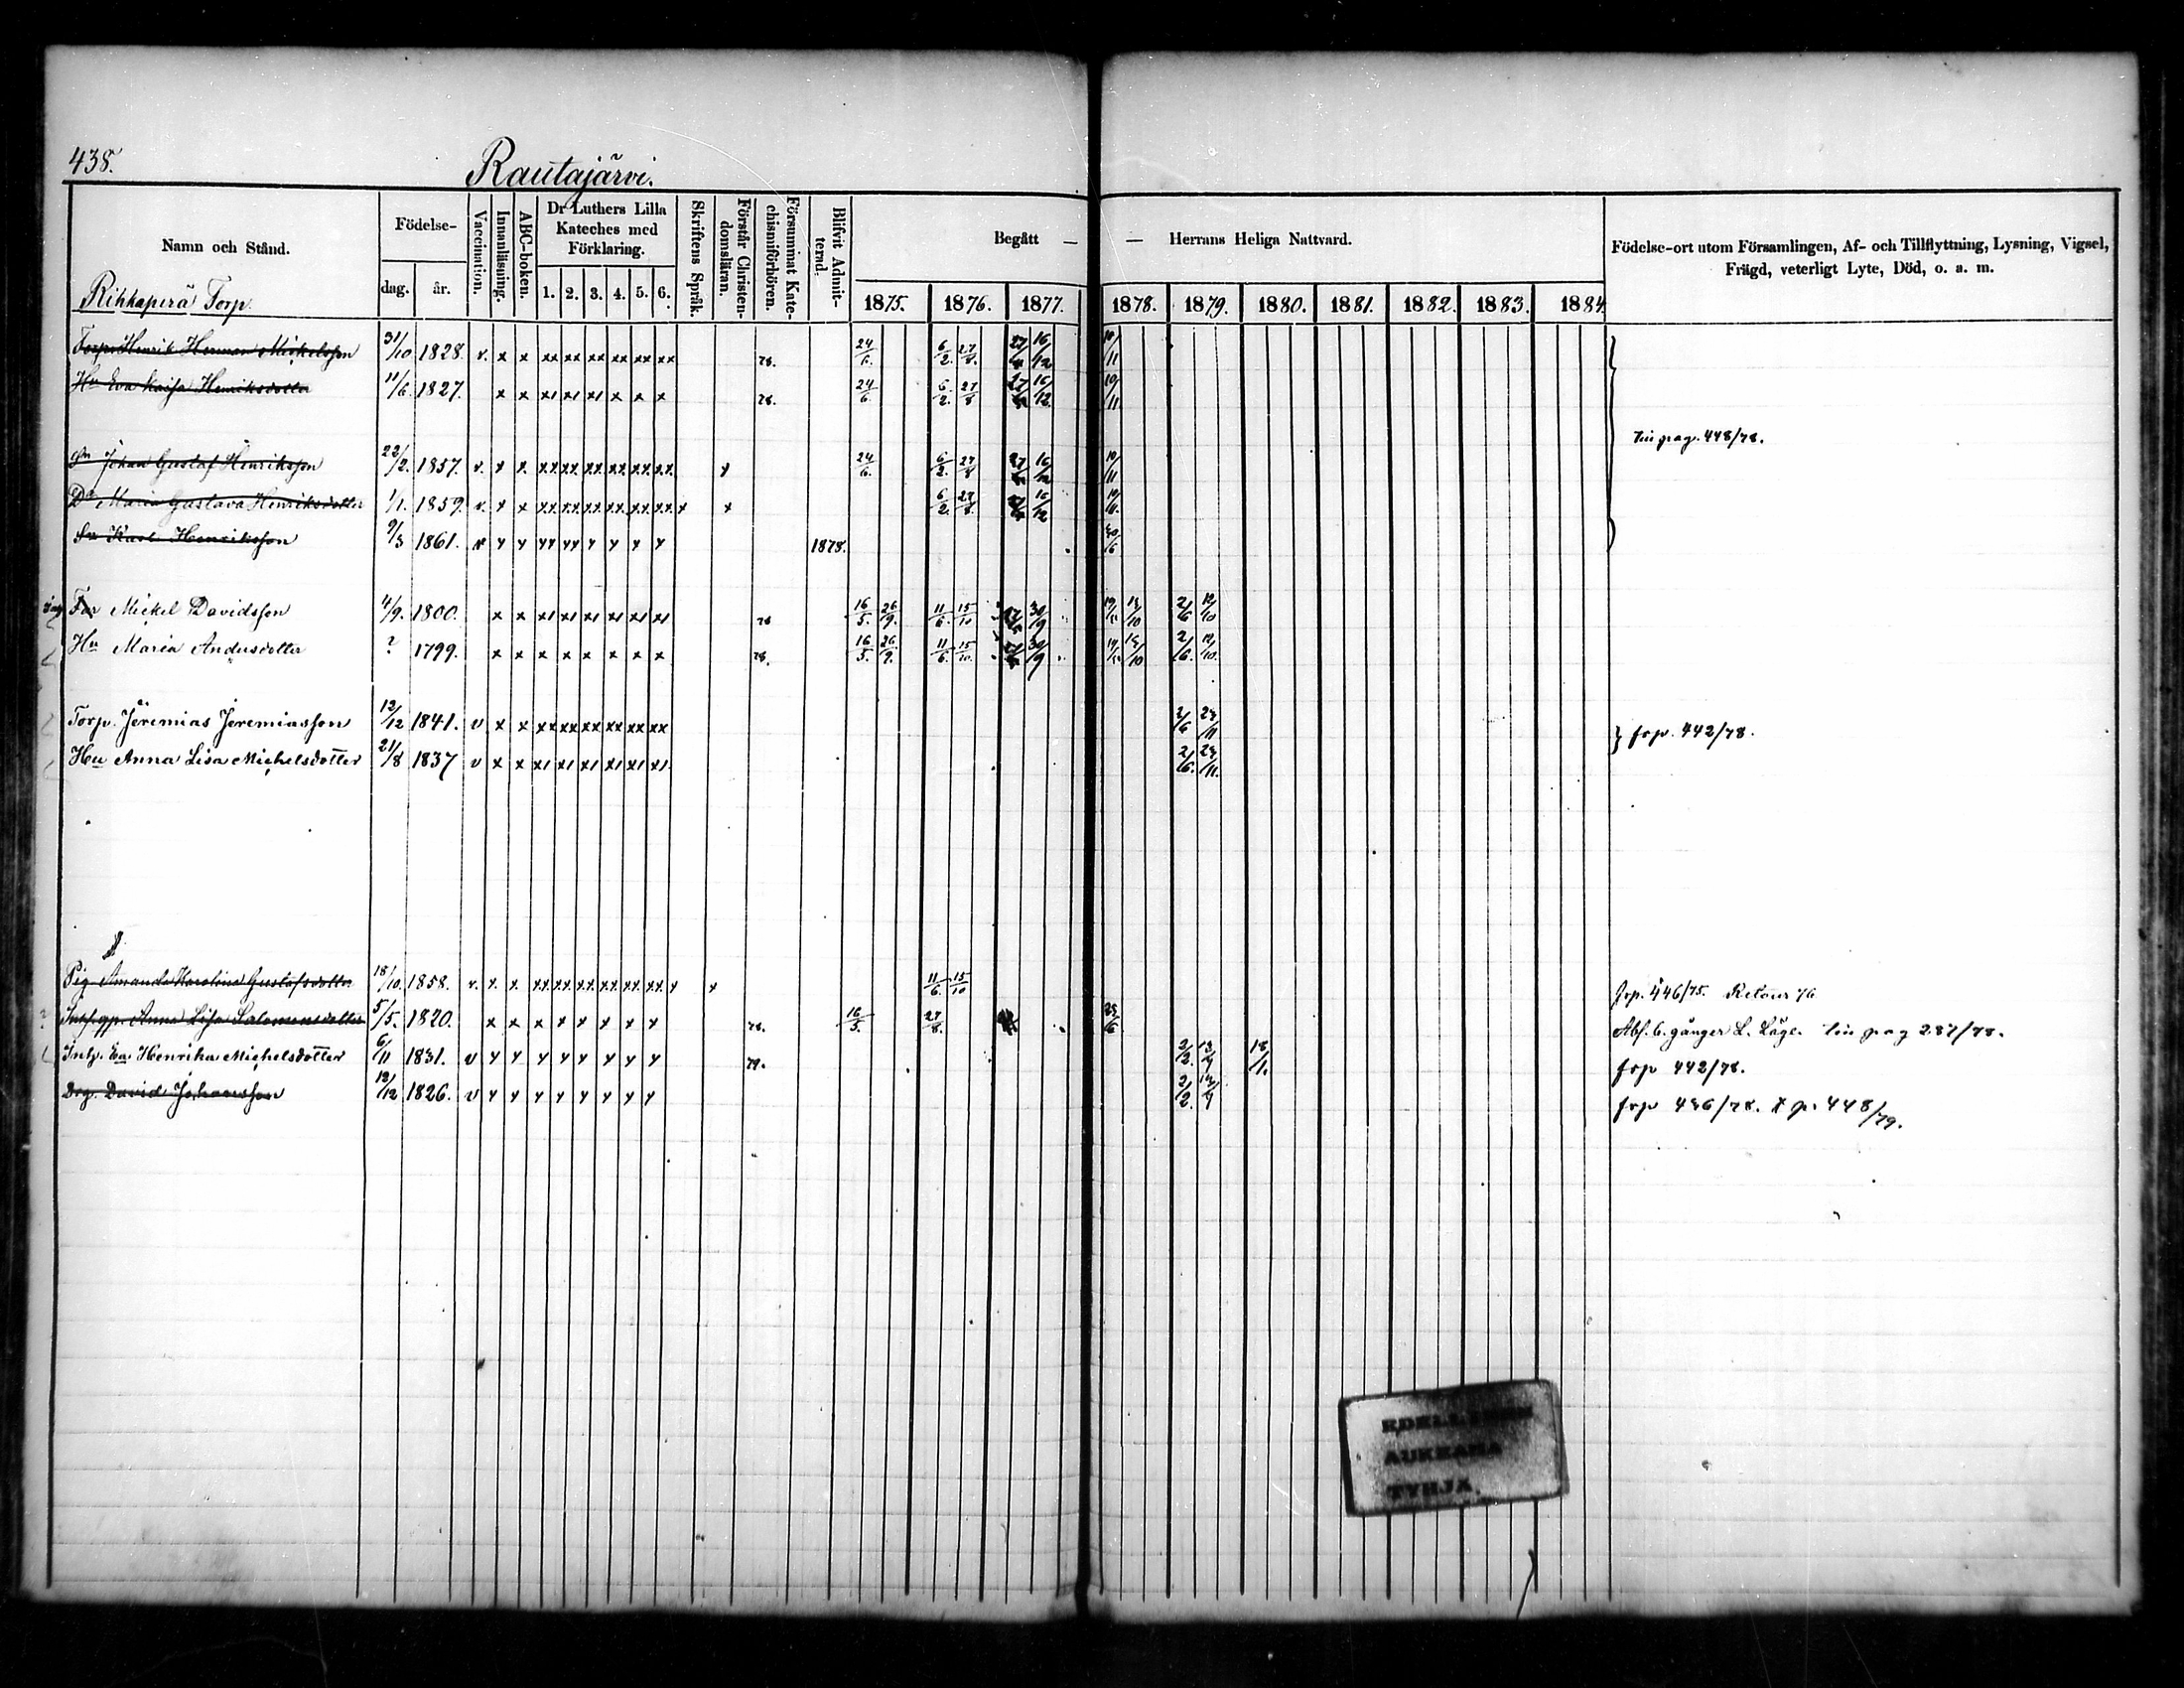 438.
Rautajärvi.
Namn och Stånd.
Födelse-
dag.
år.
Vaccination.
Innanläsning.
ABC-boken.
Dr Luthers Lilla
Kateches med
Förklaring.
1. 2. 3. 4. 5. 6.
Skriftens Språk.
Förstår Christen-
domsläran.
Försummat Kate-
chismiförhören.
Blifvit Admit-
terad.
Begått — — Herrans Heliga Nattvard.
1875. 1876. 1877. 1878. 1879. 1880. 1881. 1882. 1883. 1884
Födelse-ort utom Församlingen, Af- och Tillflyttning, Lysning, Vigsel,
Frägd, veterligt Lyte, Död, o. a. m.
Rihkaperä Torp.
Torp. Henrik Herman Mickelsson 31/10 1828. v. x x xx xx xx xx xx xx 78. 24/6. 6/2. 27/8. 16/12 10/11
Hu Eva Kaisa Henriksdotter 11/6. 1827. x x x1 x1 x1 x x x 78. 24/6. 6/2. 27/8 16/12 10/11
Sn Johan Gustaf Henriksson 22/2. 1857. v. x x xx xx xx xx xx xx x 24/6. 6/2. 27/8 16/12 10/11
Dr Maria Gustava Henriksdotter 1/1. 1859. v. x x xx xx xx xx xx xx x x 6/2. 27/8. 16/12 10/11.
Sn Karl Henriksson 9/3 1861. v x x xx xx x x x x 1878. 30/6
Tin pag. 448/78.
Mickel Davidsson 4/9. 1800. x x x1 x1 x1 x1 x1 x1 78 16/5. 26/9. 11/6. 15/10 30/9 13/10 2/6 12/10
Hu Maria Andersdotter ? 1799. x x x x x x x x 78. 16/5. 26/9. 11/6. 15/10. 30/9 13/10 2/6. 12/10.
Torp. Jeremias Jeremiasson 12/12 1841. v x x xx xx xx xx xx xx 2/6 23/11
} frp. 442/78.
Hu Anna Lisa Michelsdotter 21/8 1837 v x x x1 x1 x1 x1 x1 x1. 2/6. 23/11.
Pig. Amanda Karolina Gustafsdotter 18/10. 1858. v. x. x xx xx xx xx xx xx. x x 11/6. 15/10 frp. 446/75. Retour 76
Anna Lisa Salomonsdotter 5/5. 1820. x x x x x x x x 78. 16/5. 27/8. 23/6 Abs. 6. gånger L. Läge. Tin pag 287/78.
Inh. Ea. Henrika Michelsdotter 6/11 1831. v x x x x x x x x 79. 2/2. 13/4 18/1. frp 442/78.
Drg. David Johansson 12/12 1826. v x x x x x x x x 2/2. 13/4 frp 436/78. x p. 448/79.
EDELLINEN
AUKEAMA
TYHJÄ.